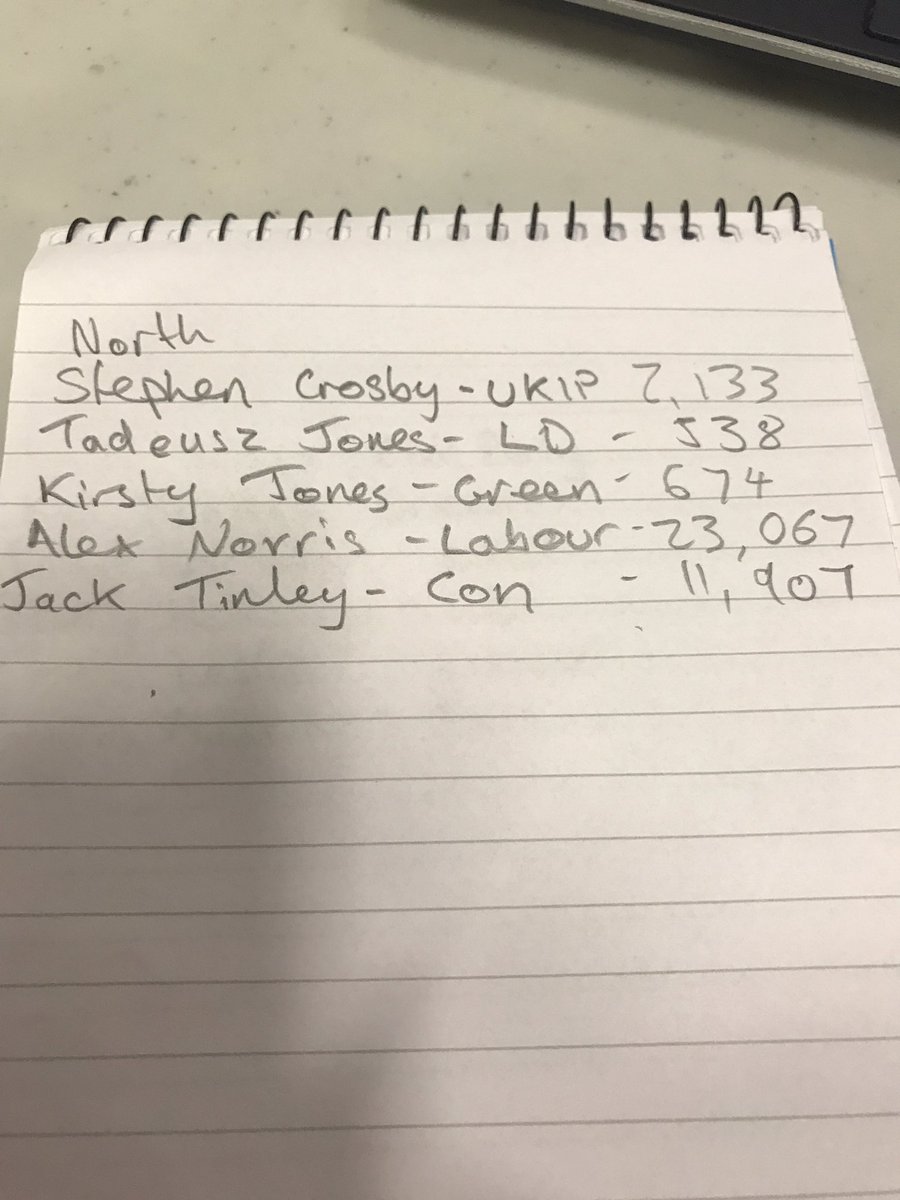 North
Stephen Crosby - UKIP 2,133
Tadeusz Jones - LD - 538
Kirsty Jones - Green - 674
Alex Norris - Labour - 23,067
Jack Tinley - Con - 11,907